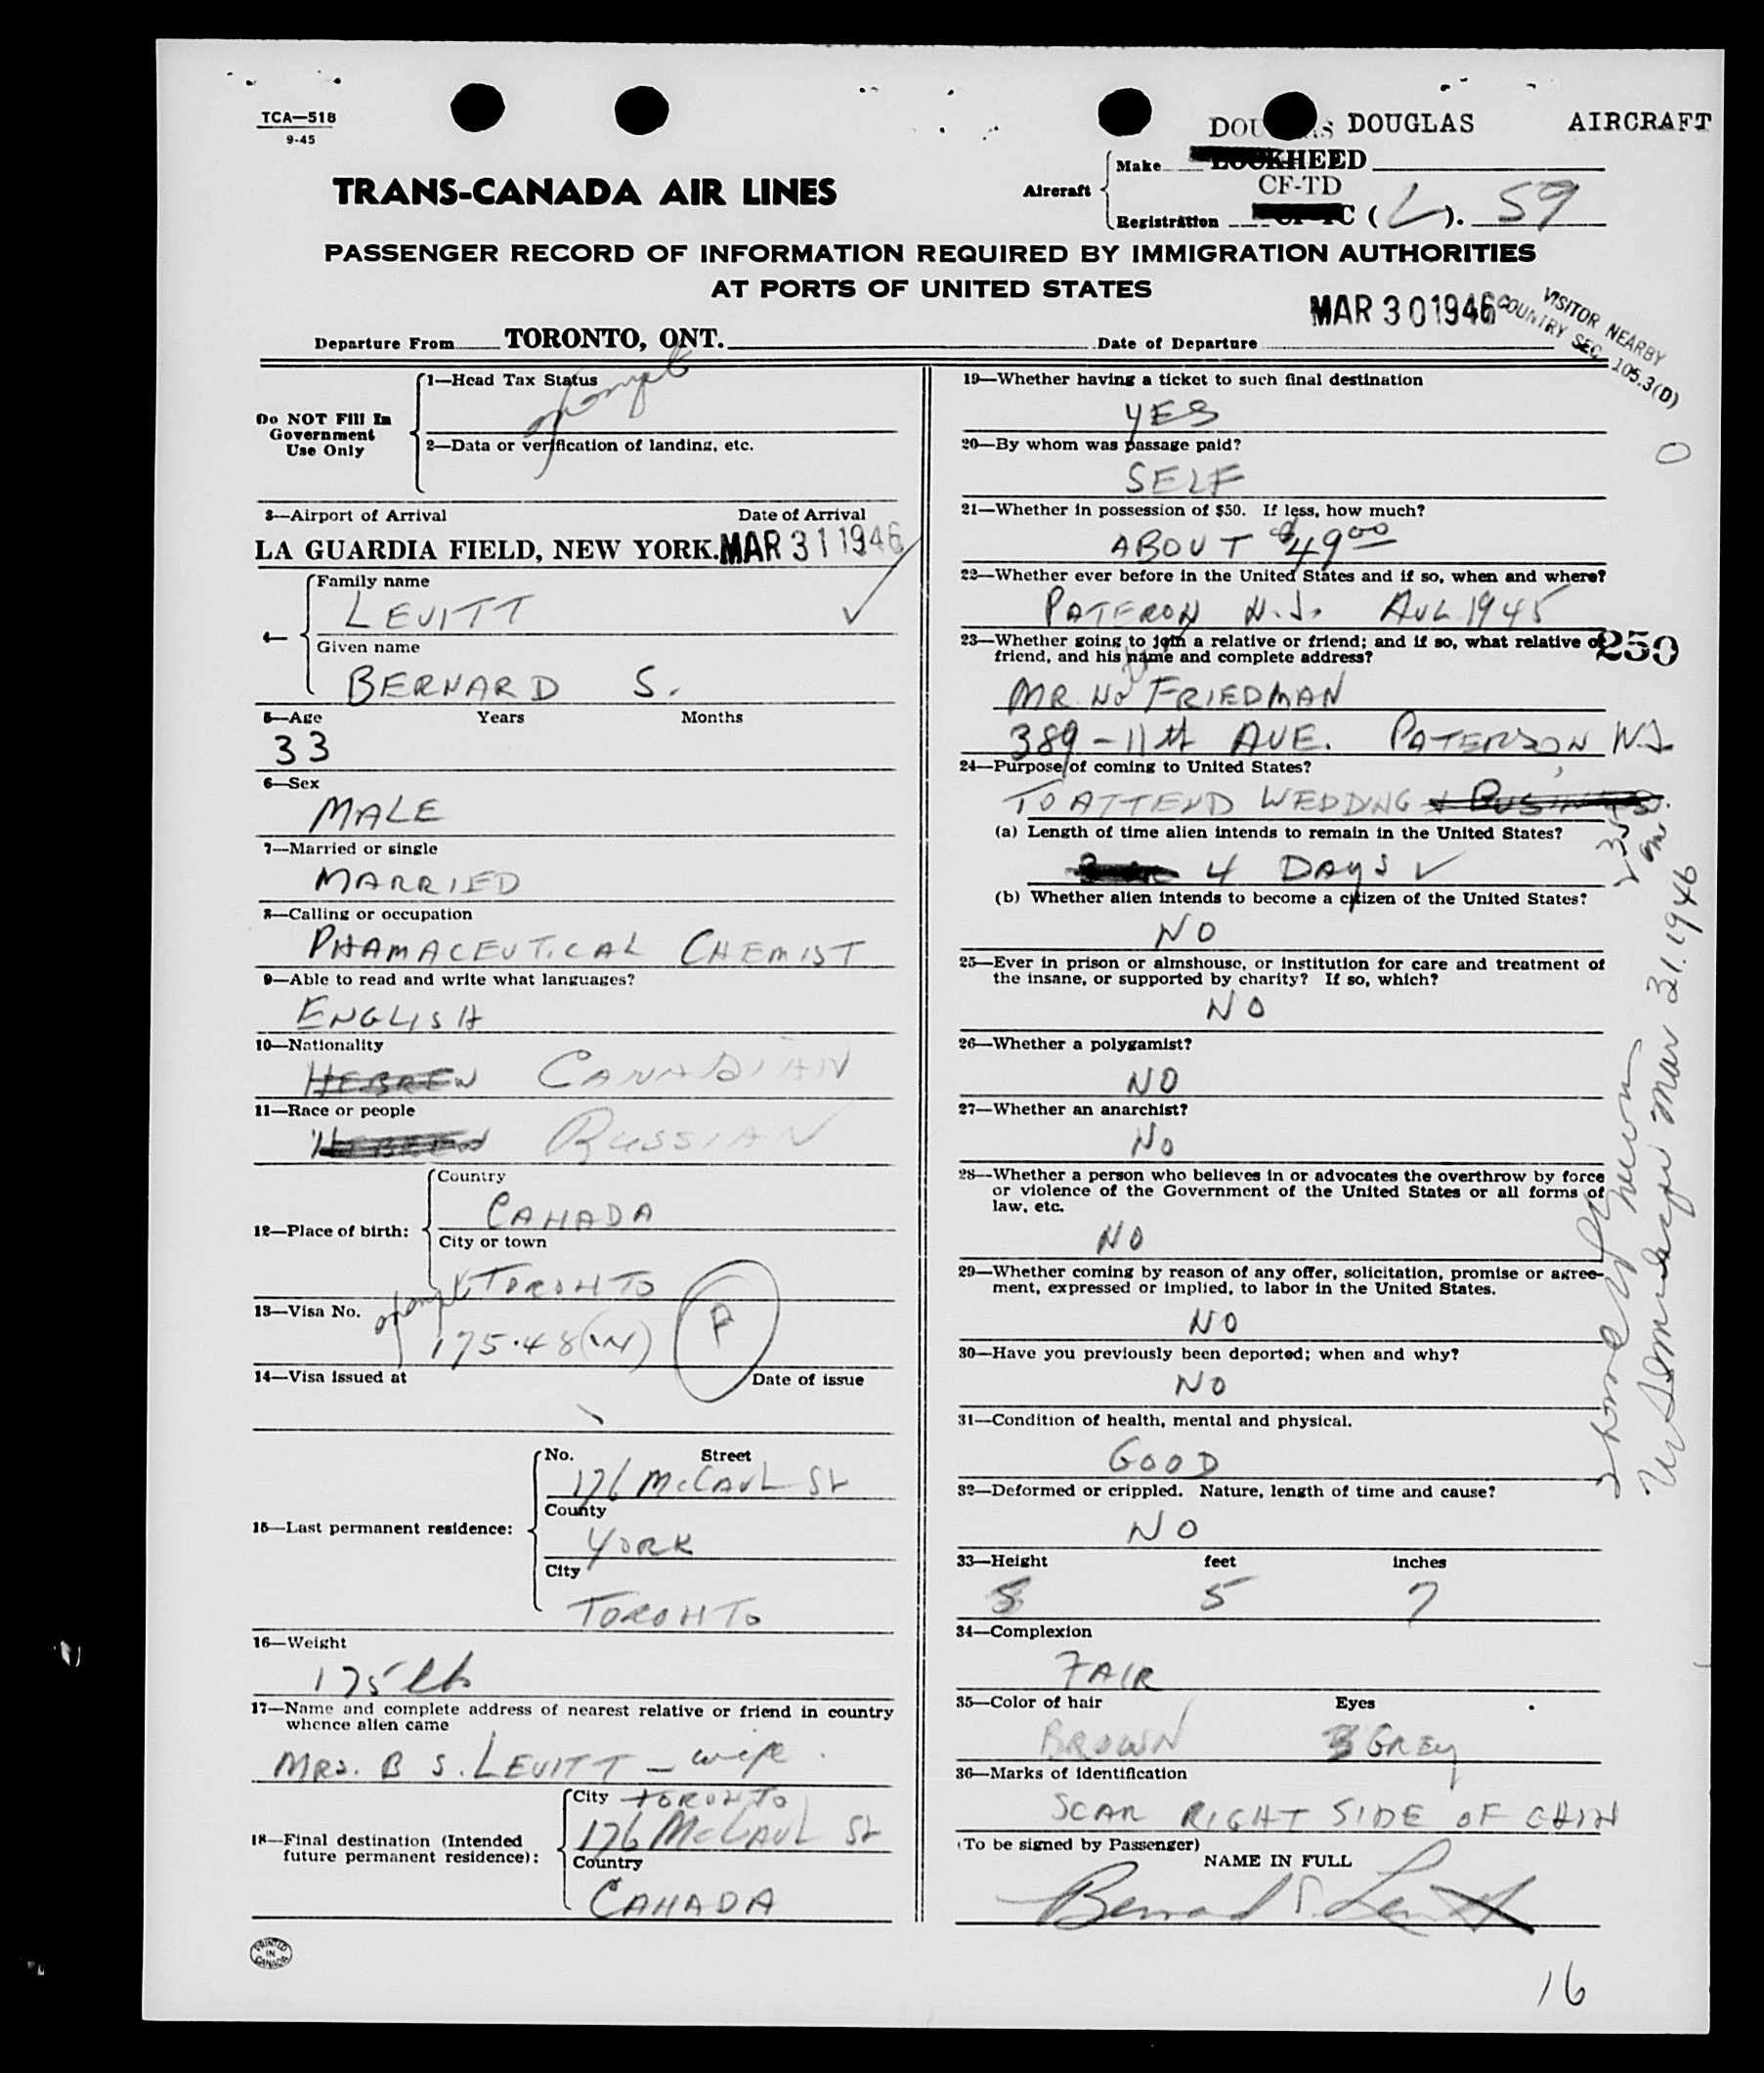 TCA—518
9-45
DOUGLAS AIRCRAFT
Make LOCKHEED
CF-TD
Aircraft
Registration ( L ). 59
TRANS-CANADA AIR LINES
PASSENGER RECORD OF INFORMATION REQUIRED BY IMMIGRATION AUTHORITIES
AT PORTS OF UNITED STATES
MAR 30 1946
VISITOR NEARBY
COUNTRY SEC. 105.3(D)
Departure From TORONTO, ONT. Date of Departure
Do NOT Fill In
Government
Use Only
1—Head Tax Status
2—Data or verification of landing, etc.
3—Airport of Arrival Date of Arrival
LA GUARDIA FIELD, NEW YORK. MAR 31 1946
4—
Family name
LEVITT
Given name
BERNARD S.
5—Age Years Months
33
6—Sex
MALE
7—Married or single
MARRIED
8—Calling or occupation
PHAMACEUTICAL CHEMIST
9—Able to read and write what languages?
ENGLISH
10—Nationality
HEBREW CANADIAN
11—Race or people
HEBREW RUSSIAN
12—Place of birth:
Country
CANADA
City or town
TORONTO
13—Visa No.
175.48 P
14—Visa issued at Date of issue
15—Last permanent residence:
No. Street
176 McCAUL St
County
YORK
City
TORONTO
16—Weight
175 lb
17—Name and complete address of nearest relative or friend in country
whence alien came
MRS. B S. LEVITT — wife.
18—Final destination (Intended
future permanent residence):
City TORONTO
176 McCAUL St
Country
CANADA
PRINTED
IN
CANADA
19—Whether having a ticket to such final destination
YES
20—By whom was passage paid?
SELF
21—Whether in possession of $50. If less, how much?
ABOUT $49.00
22—Whether ever before in the United States and if so, when and where?
PATERON N.J. AUG 1945
23—Whether going to join a relative or friend; and if so, what relative or
friend, and his name and complete address?
250
MR. FRIEDMAN
389 - 11th AVE. PATERSON N.J.
24—Purpose of coming to United States?
TO ATTEND WEDDING & BUSINESS.
(a) Length of time alien intends to remain in the United States?
4 DAYS
(b) Whether alien intends to become a citizen of the United States?
NO
25—Ever in prison or almshouse, or institution for care and treatment of
the insane, or supported by charity? If so, which?
NO
26—Whether a polygamist?
NO
27—Whether an anarchist?
NO
28—Whether a person who believes in or advocates the overthrow by force
or violence of the Government of the United States or all forms of
law, etc.
NO
29—Whether coming by reason of any offer, solicitation, promise or agree-
ment, expressed or implied, to labor in the United States.
NO
30—Have you previously been deported; when and why?
NO
31—Condition of health, mental and physical.
GOOD
32—Deformed or crippled. Nature, length of time and cause?
NO
33—Height feet inches
5 7
34—Complexion
FAIR
35—Color of hair Eyes
BROWN GREY
36—Marks of identification
SCAR RIGHT SIDE OF CHIN
(To be signed by Passenger)
NAME IN FULL
Bernard S. Levitt
Mar 31. 1946
16